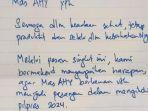 Mas AHY yph
Semoga dlm keadaan sehat, tetap
produktif dan selalu dlm
Melalui pesan singkat ini, kami
bermaksud menyampaikan harapan,
agar Mas AHY berkenan utk
menjadi pasangan dalam
pilpres 2024.